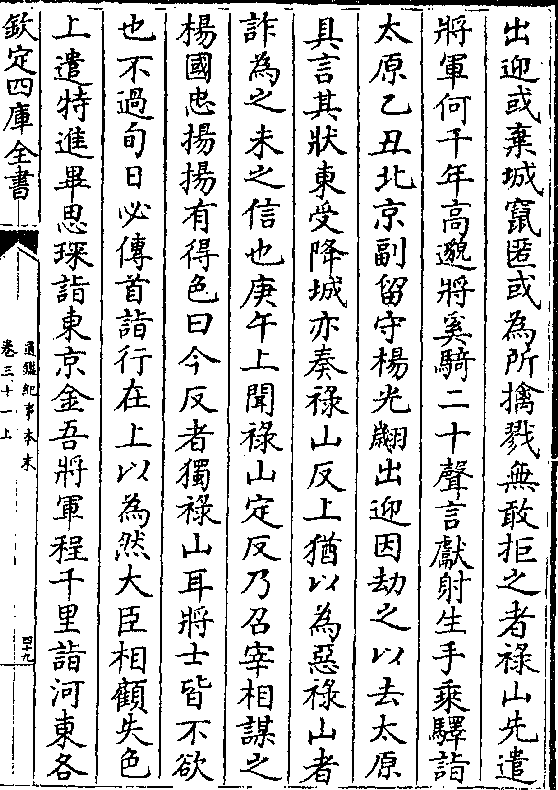 出迎或棄城竄匿或為所擒戮無敢拒之者祿山先遣
將軍何千年高邈將奚騎二十聲言獻射生手乘驛詣
太原乙丑北京副留守楊光翽出迎因劫之以去太原
具言其狀東受降城亦奏祿山反上猶以為惡祿山者
詐為之未之信也庚午上聞祿山定反乃召宰相謀之
楊國忠揚揚有得色曰今反者獨祿山耳將士皆不欲
也不過旬日必傳首詣行在上以為然大臣相顧失色
上遣特進畢思琛詣東京金吾將軍程千里詣河東各
欽定四庫全書
通鑑紀事本末
卷三十一上
四十九